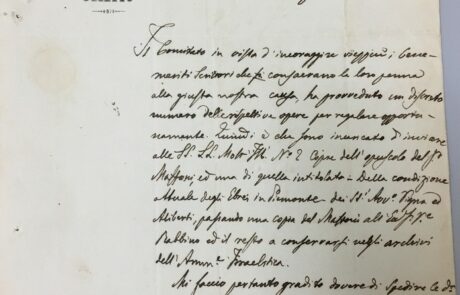 Il Comitato in vista d'incoraggire vieppiù i bene
meriti Scrittori che consacrano la loro penna
alla giusta nostra causa, ha provveduto un discreto
numero delle rispettive opere per regalare opportu-
namente. Quindi è che sono incaricato d'inviare
alle SS. LL. Molt' Ill. N.o 2 Copie dell'opuscolo del
Maffoni, ed una di quella intitolata - Della condizione
attuale degli Ebrei in Piemonte - dei SS.i Avv.i Vigna ed
Aliberti, passando una copia del Maffoni all'
Rabbino ed il resto a conservarsi negli archivi
dell'Amm.e Israelitica.
Mi faccio pertanto gradito dovere di spedire le